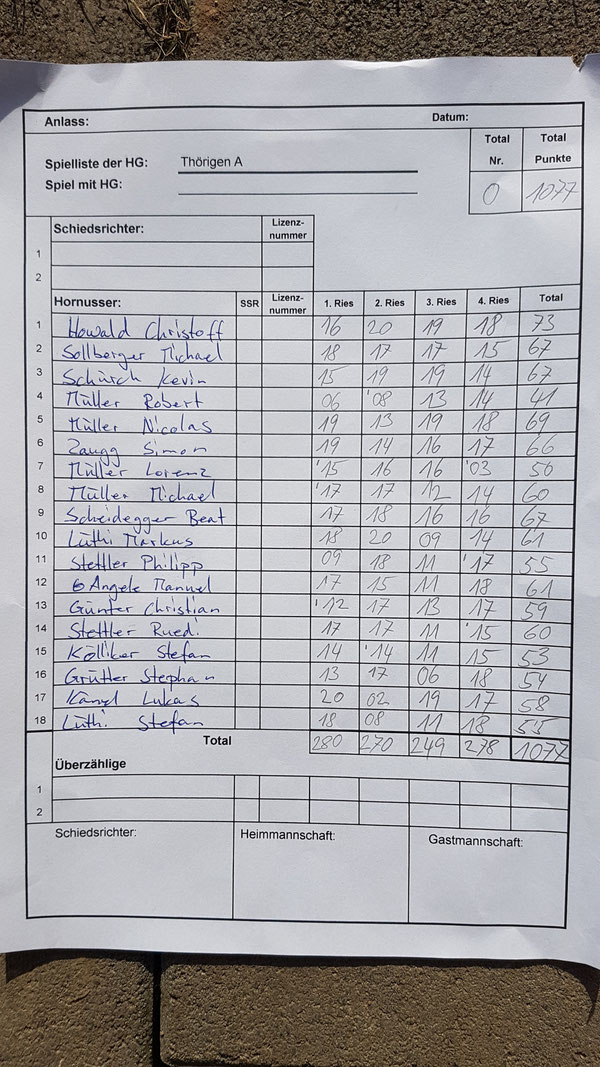 Anlass: Datum:
Total Nr. Total Punkte
Spielliste der HG: Thörigen A
Spiel mit HG:
0 1077
Schiedsrichter: Lizenz-nummer
1
2
Hornusser: SSR Lizenz-nummer 1. Ries 2. Ries 3. Ries 4. Ries Total
1 Howald Christoff 16 20 19 18 73
2 Sollberger Michael 18 17 17 15 67
3 Schürch Kevin 15 19 19 14 67
4 Müller Robert 06 '08 13 14 41
5 Müller Nicolas 19 13 19 18 69
6 Zaugg Simon 19 14 16 17 66
7 Müller Lorenz '15 16 16 '03 50
8 Müller Michael '17 17 12 14 60
9 Scheidegger Beat 17 18 16 16 67
10 Lüthi Markus 18 20 09 14 61
11 Stettler Philipp 09 18 11 '17 55
12 Angele Manuel 17 15 11 18 61
13 Günter Christian '12 17 13 17 59
14 Stettler Ruedi 17 17 11 '15 60
15 Kölliker Stefan 14 '14 11 15 53
16 Grütter Stephan 13 17 06 18 54
17 Känel Lukas 20 02 19 17 58
18 Lüthi Stefan 18 08 11 18 55
Total 280 270 249 278 1077
Überzählige
1
2
Schiedsrichter: Heimmannschaft: Gastmannschaft: